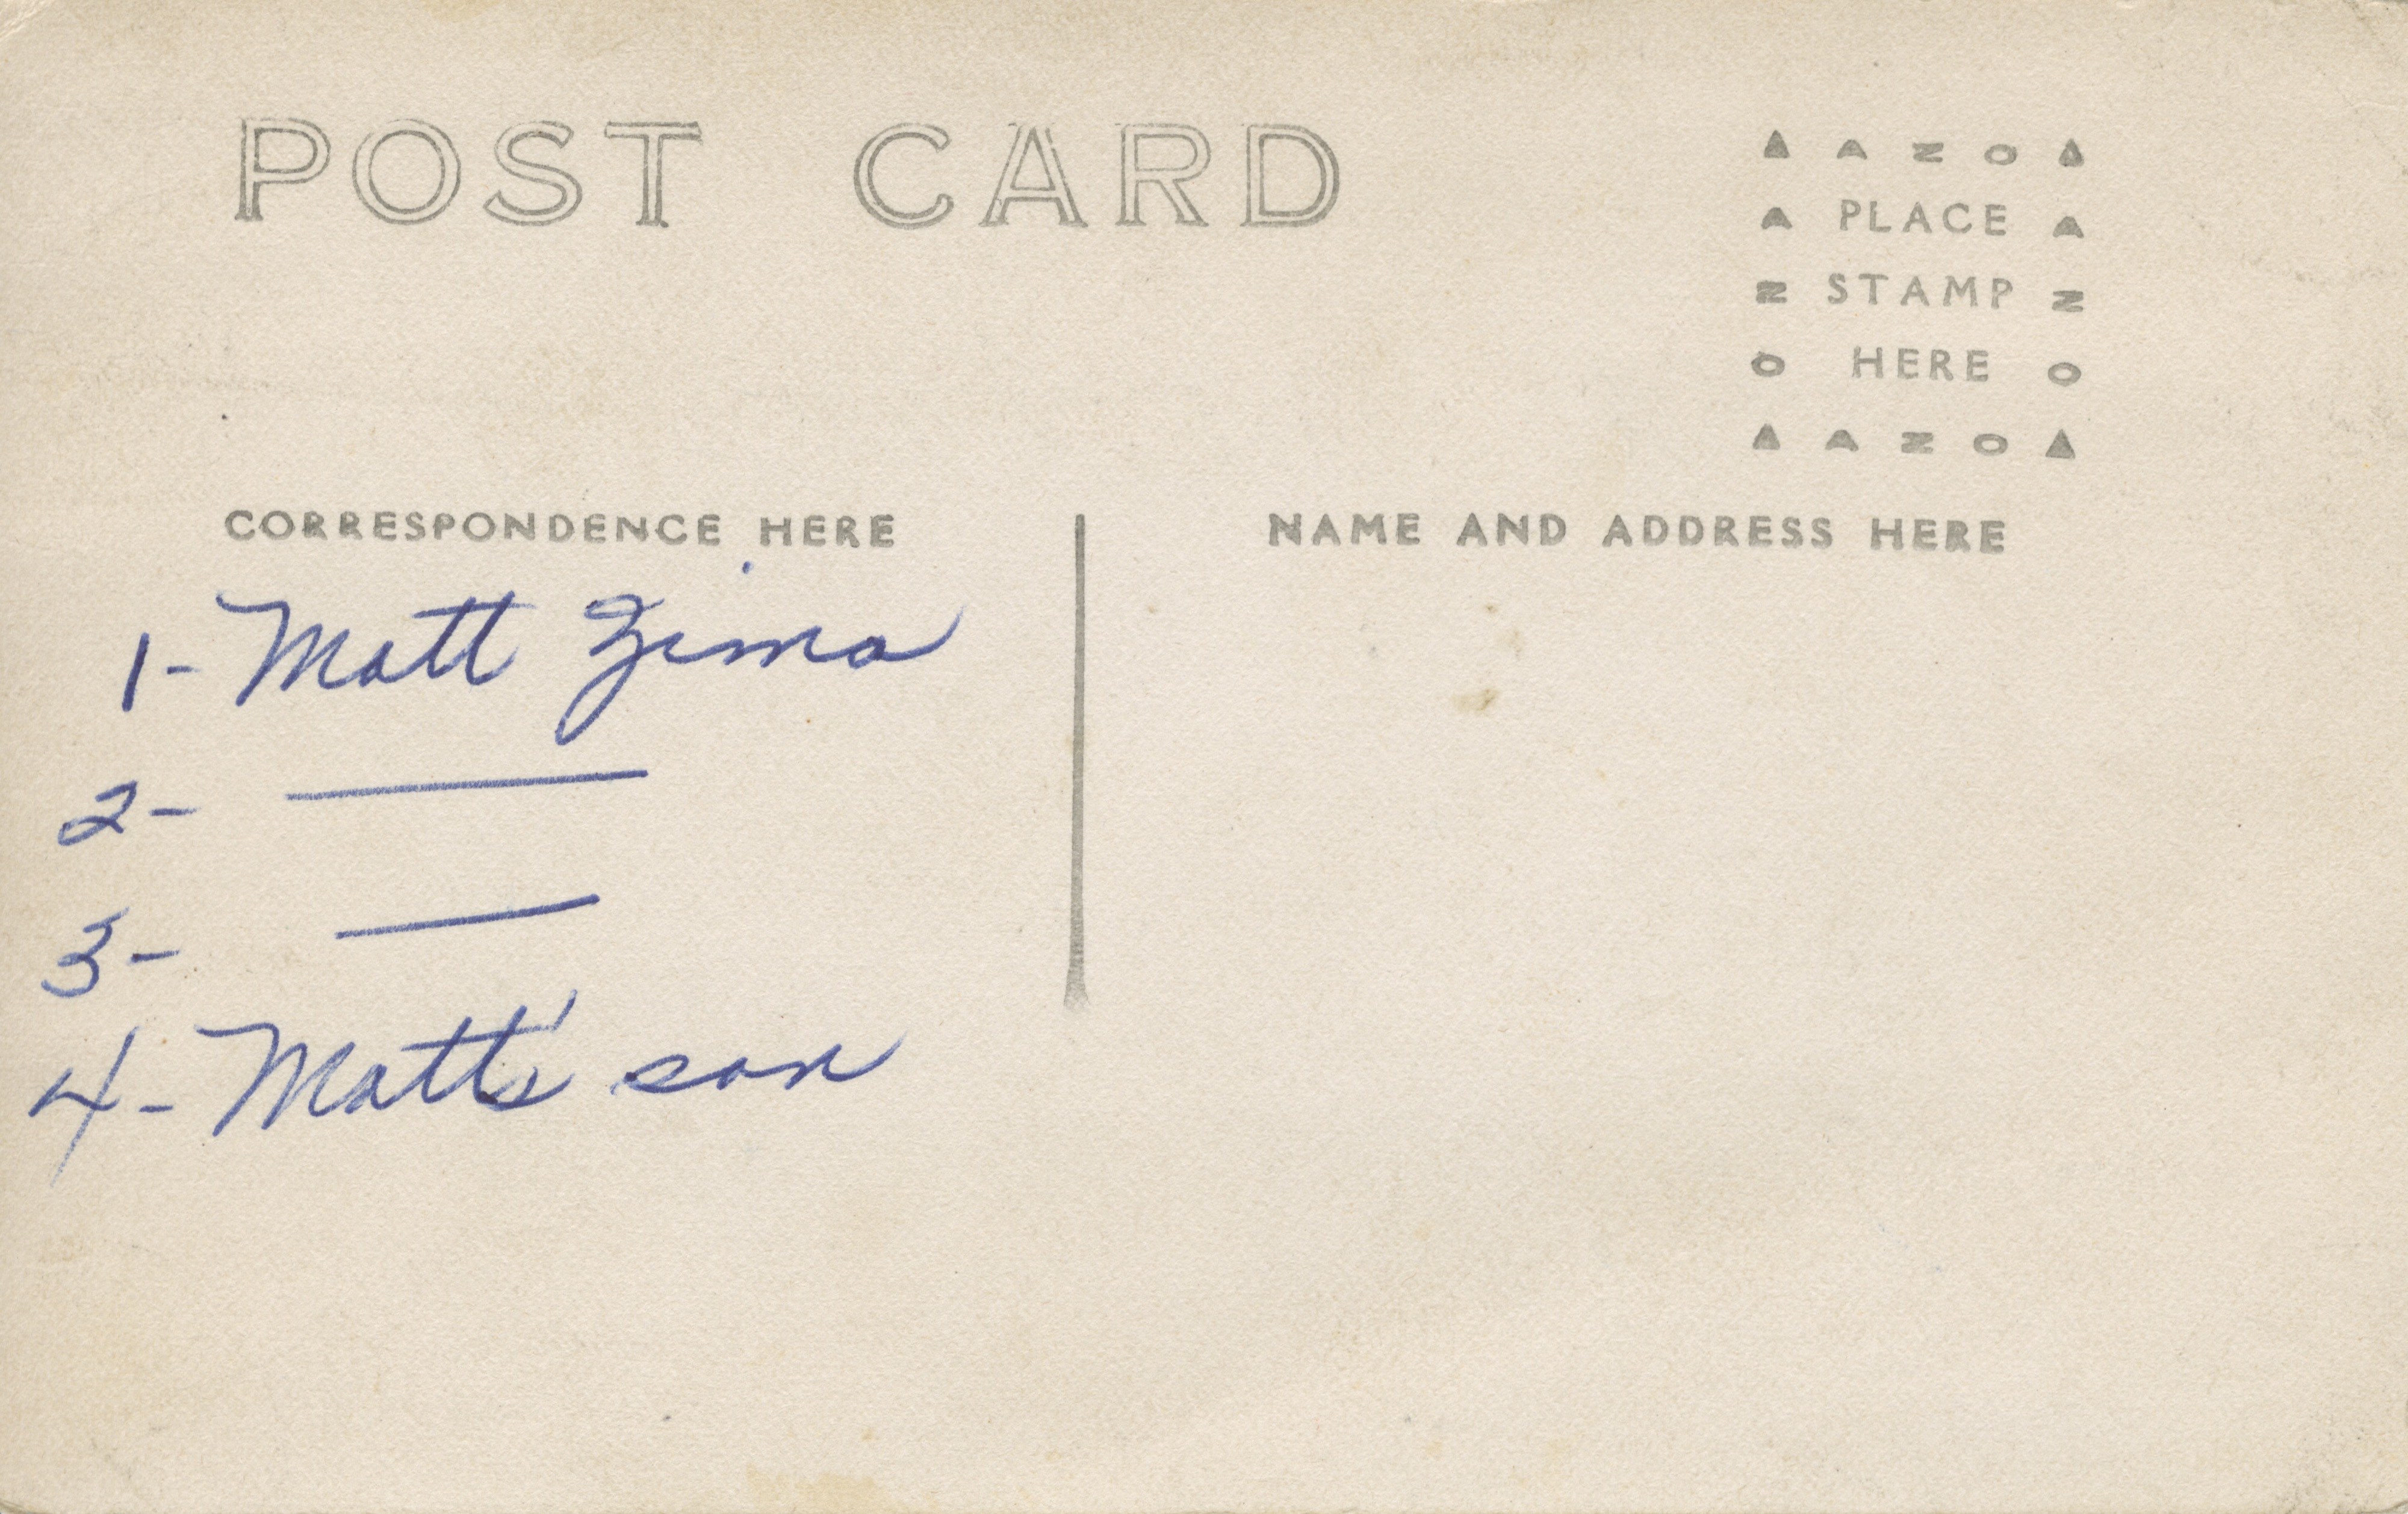 POST CARD
▲ A N O ▲
A PLACE A
N STAMP N
O HERE O
▲ A N O ▲
CORRESPONDENCE HERE
NAME AND ADDRESS HERE
1- Matt Zima
2- —
3- —
4- Matt's son